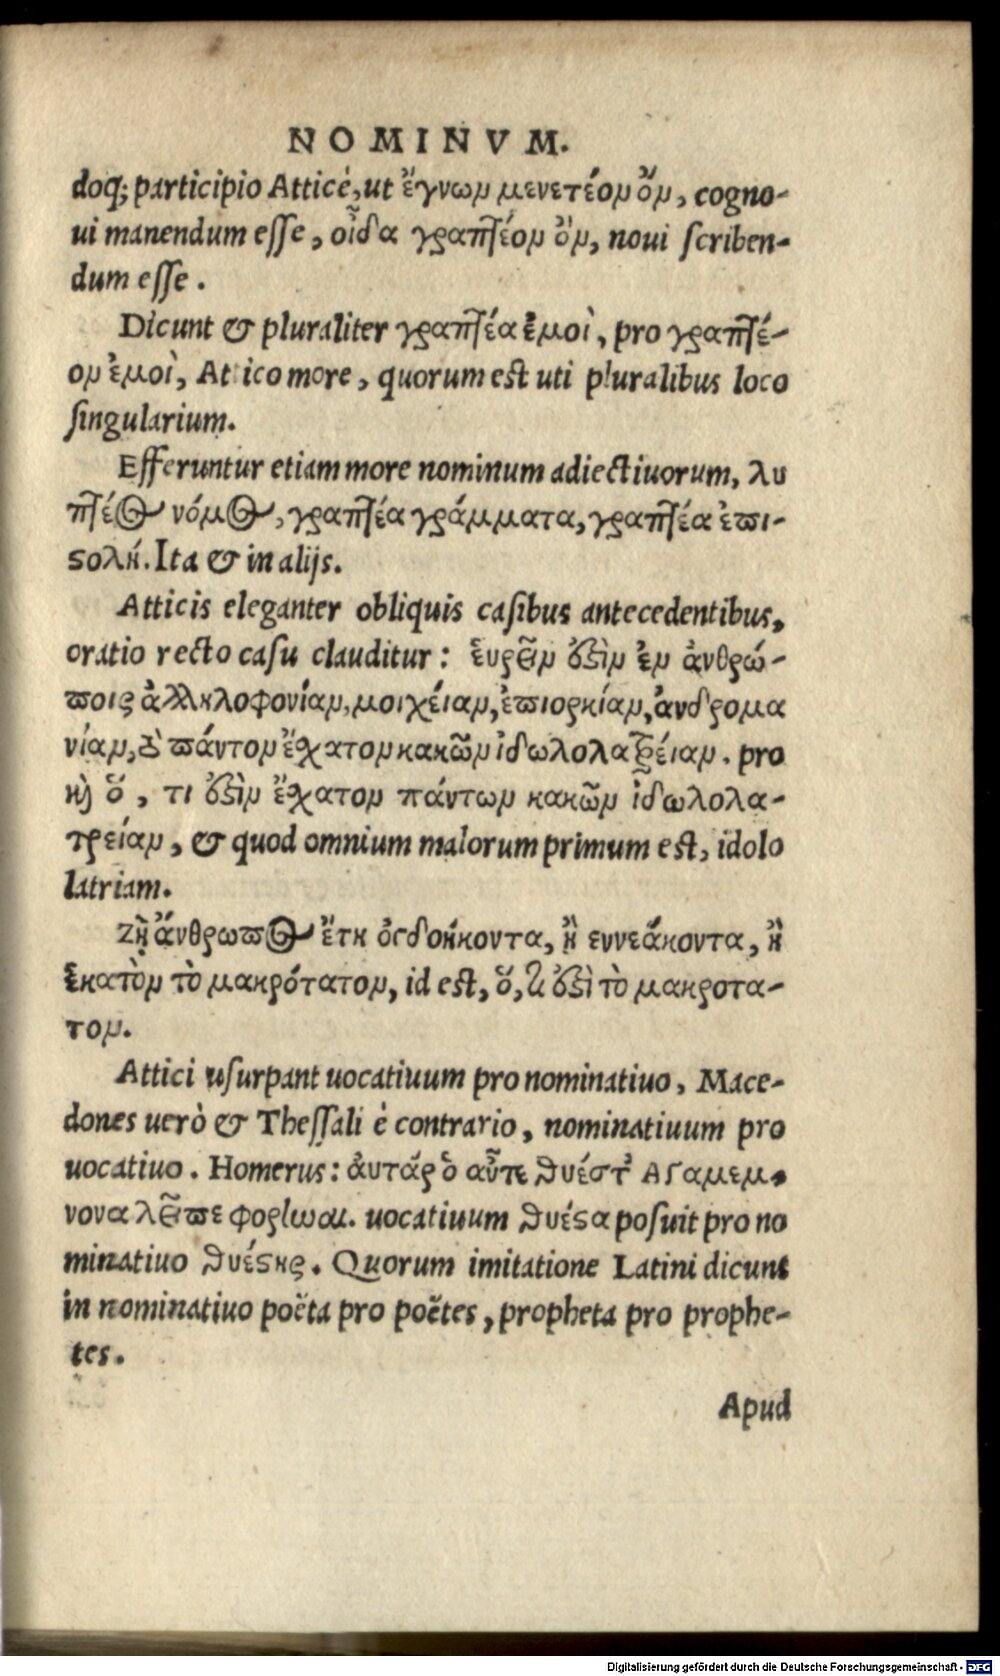 NOMINVM.
doq; participio Atticè, ut ἔγνων μενετέον ὂν, cogno-
ui manendum esse, οἶδα γραπτέον ὂν, noui scriben-
dum esse.
Dicunt & pluraliter γραπτέα ἐμοὶ, pro γραπτέ-
ον ἐμοὶ, Attico more, quorum est uti pluralibus loco
singularium.
Efferuntur etiam more nominum adiectiuorum, λυ
πτέος νόμος, γραπτέα γράμματα, γραπτέα ἐπι-
ςολή. Ita & in alijs.
Atticis eleganter obliquis casibus antecedentibus,
oratio recto casu clauditur: ἑυρεῖν ὅβιν ἐν ἀνθρώ-
ποις ἀλληλοφονίαν, μοιχείαν, ἐπιορκίαν, ἀνδρομα
νίαν, ὃ πάντον ἔχατον κακῶν ἰδωλολατρείαν. pro
καὶ ὅ, τι ὅβιν ἔχατον πάντων κακῶν ἰδωλολα-
τρείαν, & quod omnium malorum primum est, idolo
latriam.
Ζῇ ἄνθρωπος ἔτη ὀγδοήκοντα, ἢ εννεάκοντα, ἢ
ἑκατὸν τὸ μακρότατον, id est, ὅ, τι ὅβὶ τὸ μακροτα-
τον.
Attici usurpant uocatiuum pro nominatiuo, Mace-
dones uerò & Thessali è contrario, nominatiuum pro
uocatiuo. Homerus: ἀυτάρ ὁ αὖτε θυέστ' Αγαμεμ-
νονα λεῖπε φορῆναι. uocatiuum θυέςα posuit pro no
minatiuo θυέςης. Quorum imitatione Latini dicunt
in nominatiuo poëta pro poëtes, propheta pro prophe-
tes.
Apud
Digitalisierung gefördert durch die Deutsche Forschungsgemeinschaft - DFG